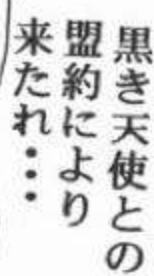 黒き天使との
盟約により
来たれ・・・